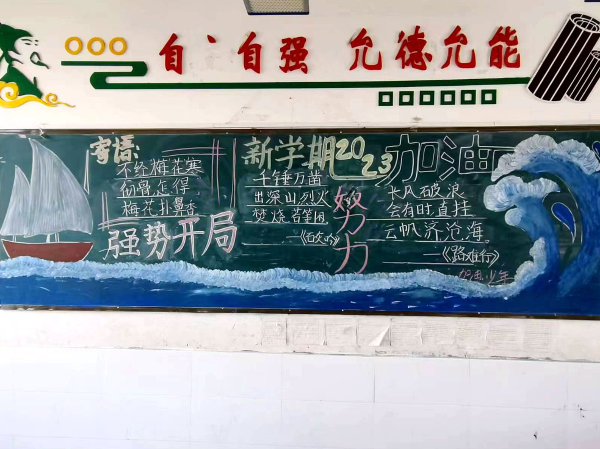 自、自强 允德允能
寄语:
不经梅花寒
彻骨怎得
梅花扑鼻香
强势开局
新学期2023
千锤万凿
出深山烈火
焚烧若等闲
—《石灰吟》
努力
加油
长风破浪
会有时直挂
云帆济沧海
—《路难行》
加油少年